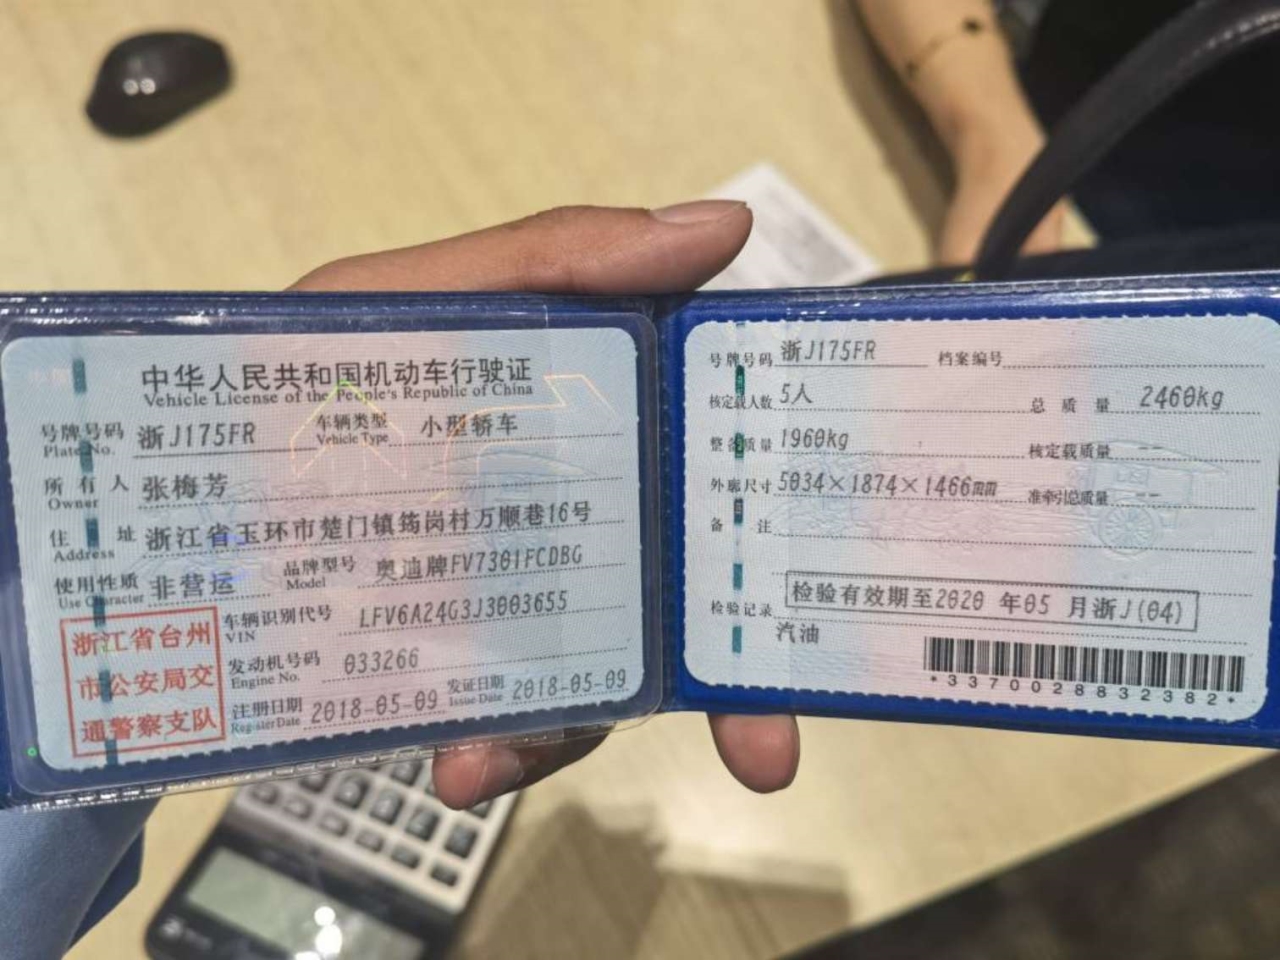 中华人民共和国机动车行驶证
Vehicle License of the People's Republic of China
号牌号码 浙J175FR 车辆类型 小型轿车
Plate No. Vehicle Type
所有人 张梅芳
Owner
住址 浙江省玉环市楚门镇筠岗村万顺巷16号
Address
使用性质 非营运 品牌型号 奥迪牌FV7301FCDBG
Use Character Model
车辆识别代号 LFV6A24G3J3003655
VIN
发动机号码 033266
Engine No.
注册日期 2018-05-09 发证日期 2018-05-09
Register Date Issue Date
浙江省台州
市公安局交
通警察支队
号牌号码 浙J175FR 档案编号
核定载人数 5人 总质量 2460kg
整备质量 1960kg 核定载质量 --
外廓尺寸 5034×1874×1466mm 准牵引总质量 --
备注
检验记录 检验有效期至2020年05月浙J(04)
汽油
*3370028832382*